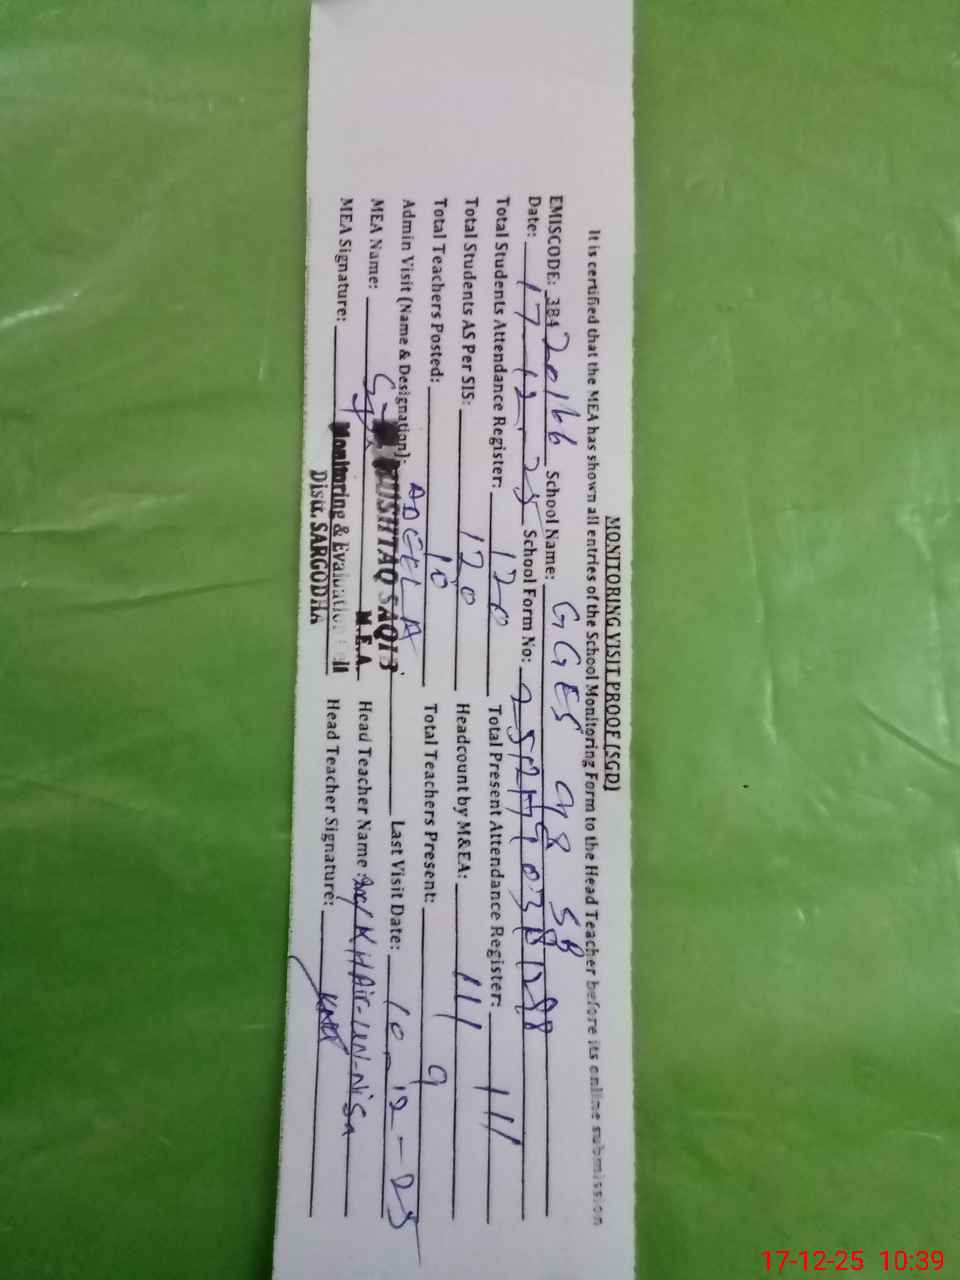 MONITORING VISIT PROOF (SGD)
It is certified that the MEA has shown all entries of the School Monitoring Form to the Head Teacher before its online submission
EMISCODE: 38420166 School Name: GGES 98 SB
Date: 17-12-25 School Form No:
Total Students Attendance Register: 120 Total Present Attendance Register: 111
Total Students AS Per SIS: 120 Headcount by M&EA: 111
Total Teachers Posted: 10 Total Teachers Present: 9
Admin Visit (Name & Designation): ADEELA Last Visit Date: 10-12-25
MEA Name: MUSHTAQ SAQIB Head Teacher Name: KHAir-UN-NiSa
M.E.A.
MEA Signature: Monitoring & Evaluation Cell Head Teacher Signature:
Distt. SARGODHA
17-12-25 10:39